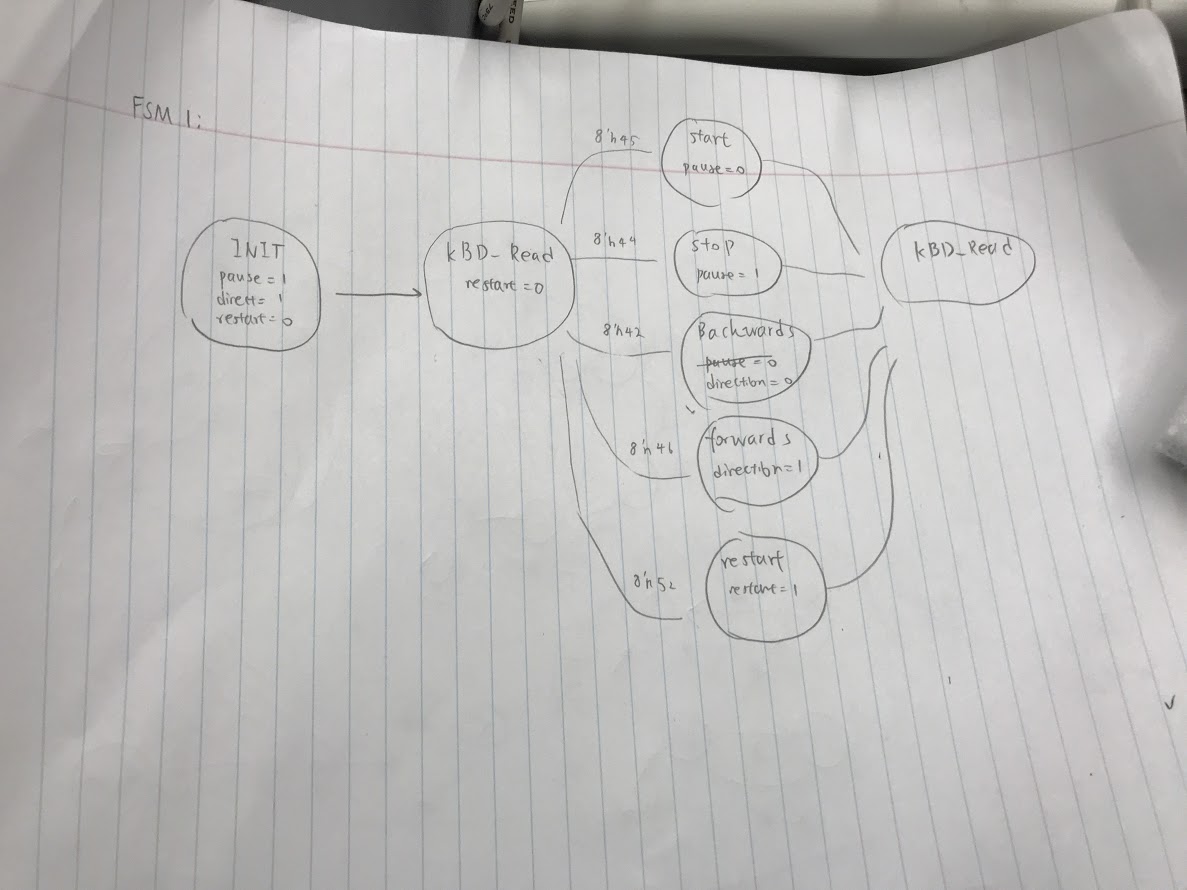 FSM 1:
INIT
pause = 1
dirett = 1
restart = 0
KBD_Read
restart = 0
8'h45
start
pause = 0
8'h44
stop
pause = 1
8'h42
Backwards
pause = 0
direction = 0
8'h46
forwards
direction = 1
8'h52
restart
restart = 1
KBD_Read